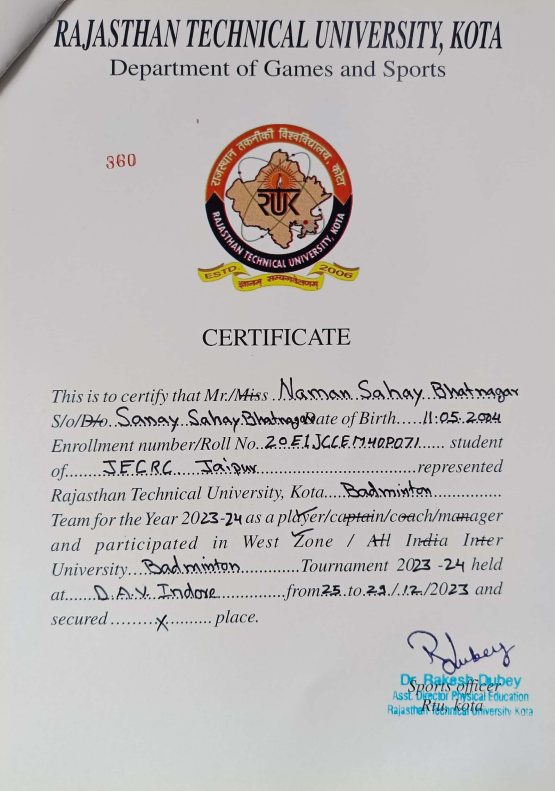 RAJASTHAN TECHNICAL UNIVERSITY, KOTA
Department of Games and Sports
360
राजस्थान तकनीकी विश्वविद्यालय, कोटा
RTU
RAJASTHAN TECHNICAL UNIVERSITY, KOTA
ESTD 2006
CERTIFICATE
This is to certify that Mr./Miss ..Naman Sahay Bhatnagar
S/o/D/o..Sanay Sahay Bhatnagar Date of Birth.....11.05.2004
Enrollment number/Roll No..20E1JCCEM40P071...... student
of........JECRC Jaipur................................represented
Rajasthan Technical University, Kota....Badminton..............
Team for the Year 2023-24 as a player/captain/coach/manager
and participated in West Zone / All India Inter
University....Badminton............Tournament 2023-24 held
at......D.A.V. Indore..............from 25..to.29./.12./2023 and
secured .........x.......... place.
R Dubey
Dr. Rakesh Dubey
Sports officer
Asst. Director Physical Education
Rtu, kota
Rajasthan Technical University Kota